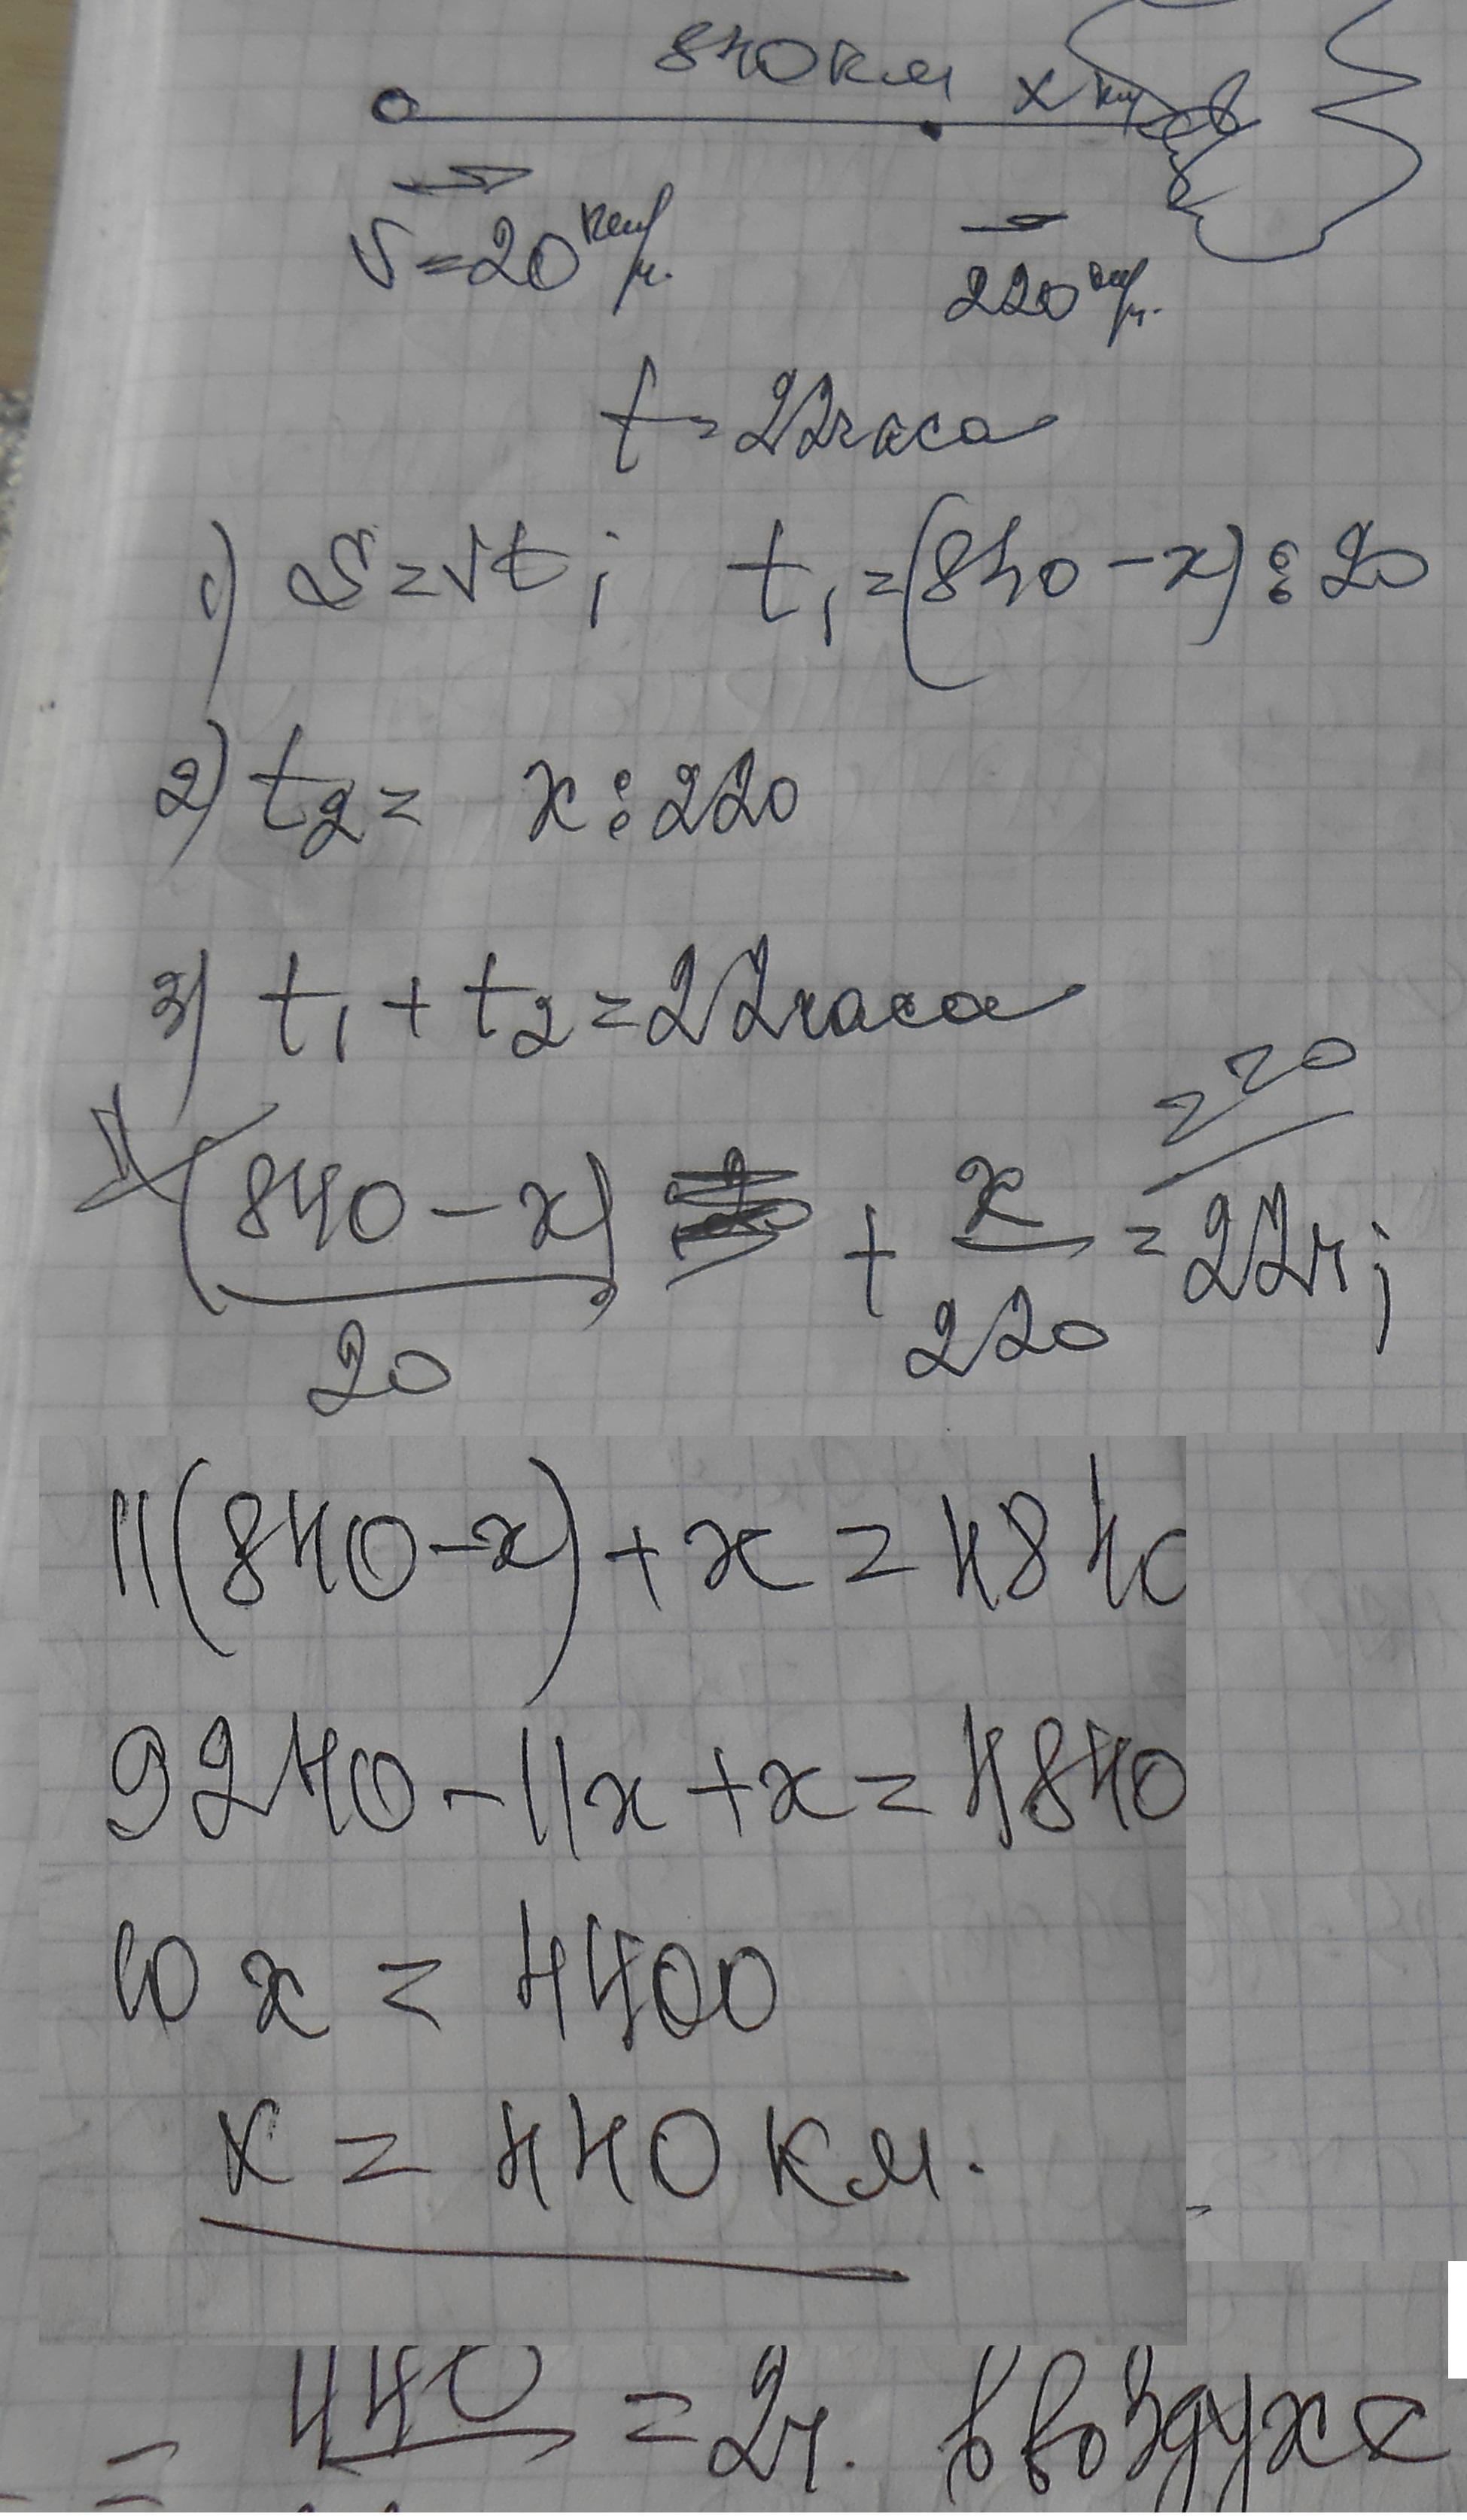 840 км x км
v = 20 км/ч.
220 км/ч.
t = 22 часа
1) S = vt; t₁ = (840 - x) : 20
2) t₂ = x : 220
3) t₁ + t₂ = 22 часа
220
11/ (840 - x)/20 + x/220 = 22 ч;
11(840 - x) + x = 4840
9240 - 11x + x = 4840
10x = 4400
x = 440 км.
= 440 = 2 ч. в воздухе